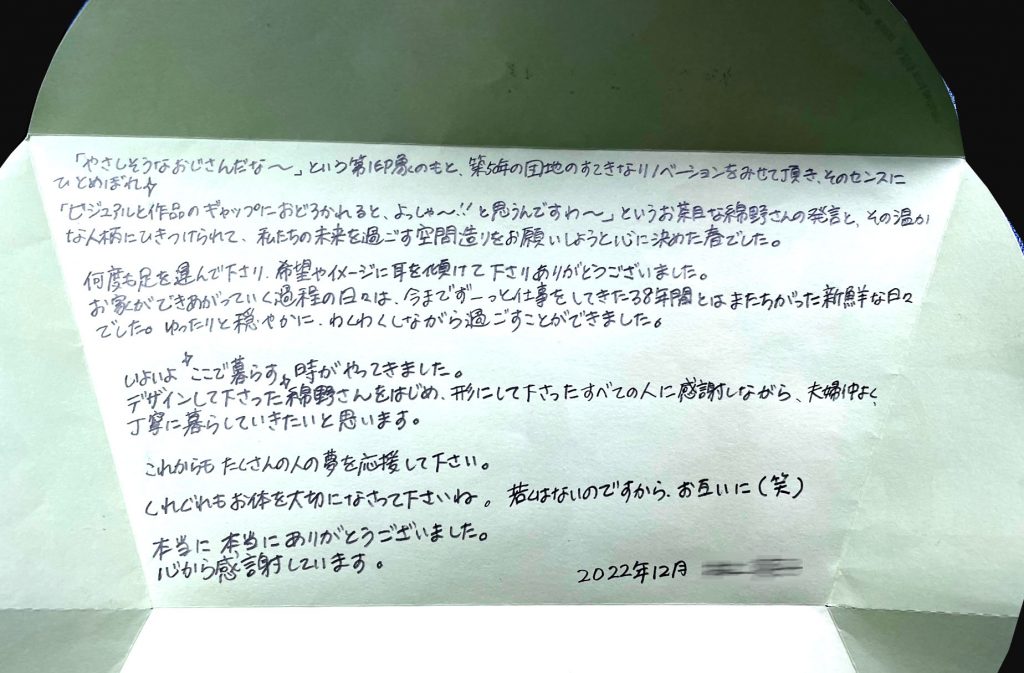 「やさしそうなおじさんだな〜」という第1印象のもと、築50年の団地のすてきなリノベーションをみせて頂き、そのセンスに
ひとめぼれ☆
「ビジュアルと作品のギャップにおどろかれると、よっしゃ〜!!と思うんですわ〜」というお茶目な綿野さんの発言と、その温か
な人柄にひきつけられて、私たちの未来を過ごす空間造りをお願いしようと心に決めた春でした。
何度も足を運んで下さり、希望やイメージに耳を傾けて下さりありがとうございました。
お家ができあがっていく過程の日々は、今までずーっと仕事をしてきた38年間とはまたちがった新鮮な日々
でした。ゆったりと穏やかに、わくわくしながら過ごすことができました。
いよいよ“ここで暮らす”時がやってきました。
デザインして下さった綿野さんをはじめ、形にして下さったすべての人に感謝しながら、夫婦仲よく、
丁寧に暮らしていきたいと思います。
これからもたくさんの人の夢を応援して下さい。
くれぐれもお体を大切になさって下さいね。若くはないのですから、お互いに(笑)
本当に本当にありがとうございました。
心から感謝しています。
2022年12月